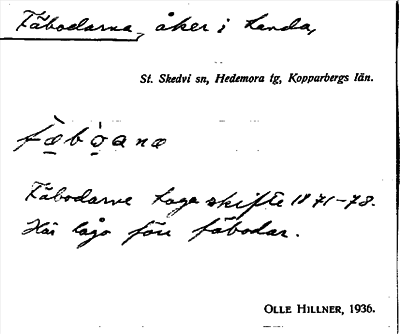 Fäbodarna, åker i Landa,
St. Skedvi sn, Hedemora tg, Kopparbergs län.
fæbo̤ana
Fäbodarne Laga skifte 1871-78.
Här lågo förr fäbodar.
OLLE HILLNER, 1936.